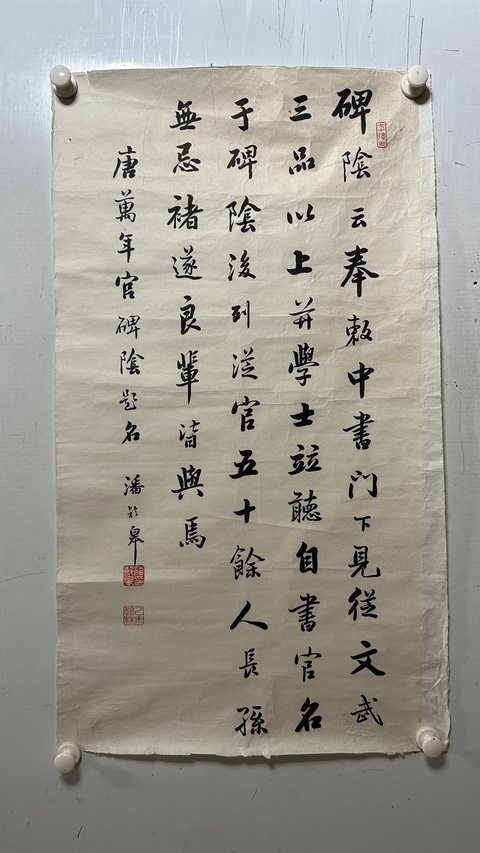 碑陰云奉敕中書門下見從文武
三品以上并學士竝聽自書官名
于碑陰後列從官五十餘人長孫
無忌褚遂良輩皆與焉
唐萬年宮碑陰題名 潘齡皋